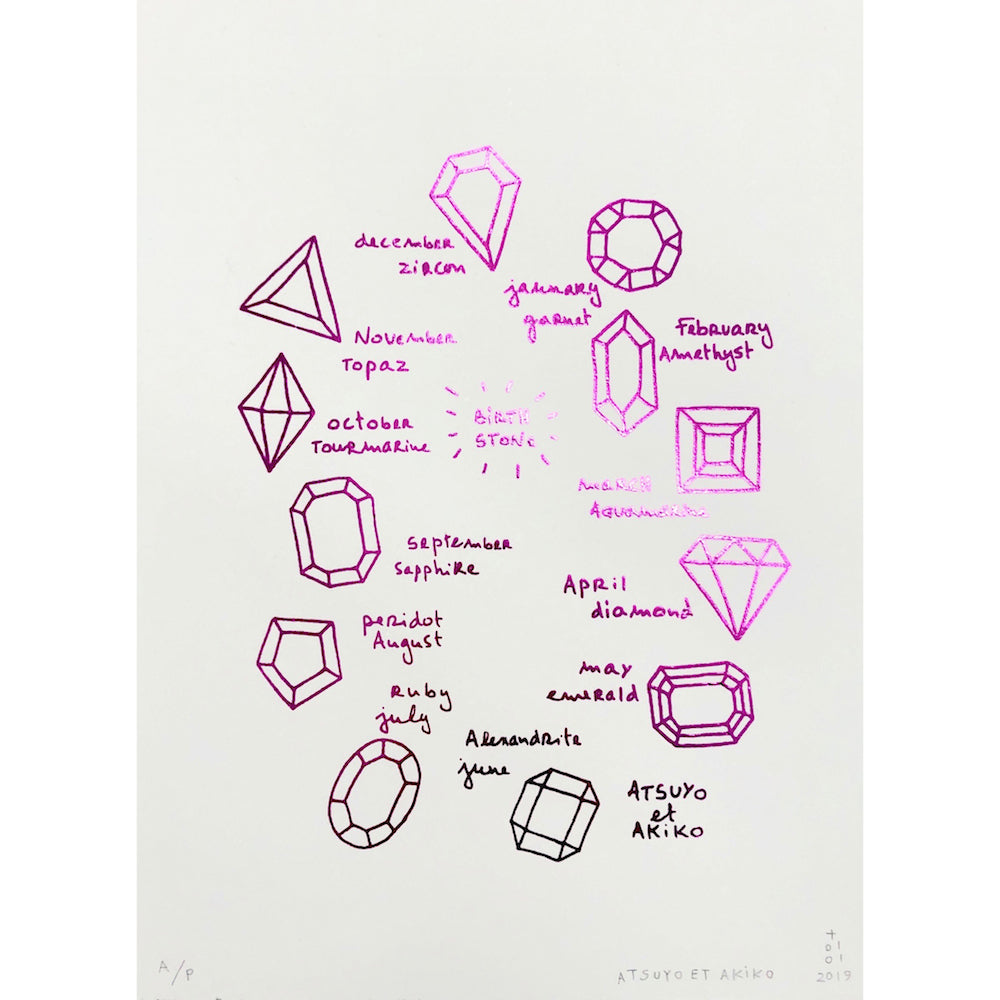 december
zircon
january
garnet
February
Amethyst
November
Topaz
BIRTH
STONE
october
Tourmarine
march
Aquamarine
september
sapphire
April
diamond
peridot
August
may
emerald
Ruby
july
Alexandrite
june
ATSUYO
et
AKIKO
A/P
ATSUYO ET AKIKO
2019